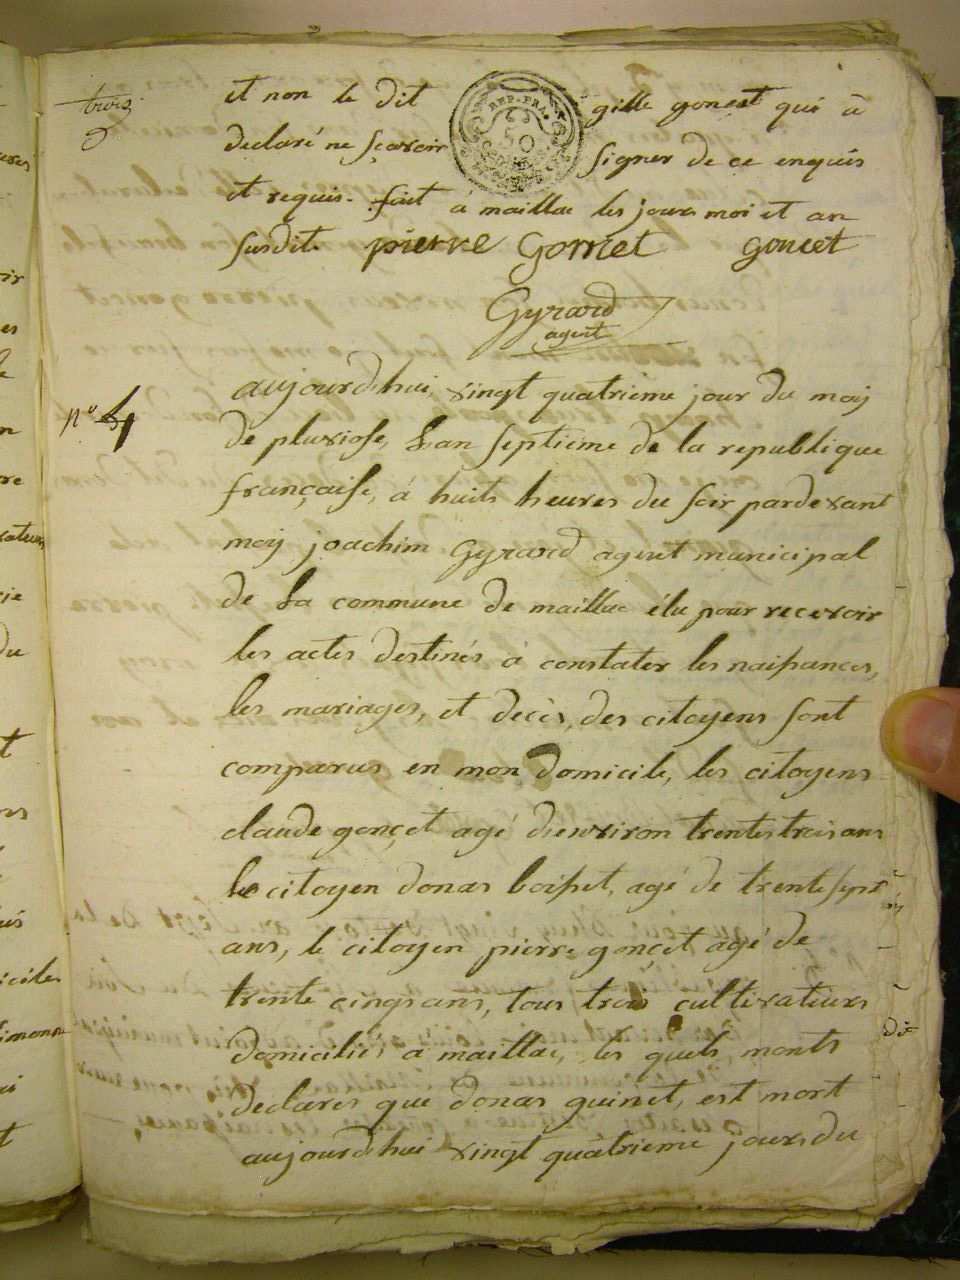 trois
et non le dit gille goncet qui à
REP. FRA.
50
declaré ne sçavoir signer de ce enquis
et requis. fait à maillac les jour moi et an
susdits pierre Goncet goncet
Gyrard
agent
n° 4
aujourdhui vingt quatrieme jour du moy
de pluviose, Lan septieme de la republique
française, à huits heures du soir pardevant
moy joachim Gyrard agent municipal
de La commune de maillac élu pour recevoir
les actes destinés à constater les naissances,
les mariages, et décès, des citoyens sont
comparus en mon domicile, les citoyens
claude gonçet agé d'environ trente trois ans
le citoyen donas boisset, agé de trente sept
ans, le citoyen pierre gonçet agé de
trente cinqs ans, tous trois cultivateurs
domiciliés a maillac, les quels monts
declarés que donas guinet, est mort
aujourdhui vingt quatrieme jours du